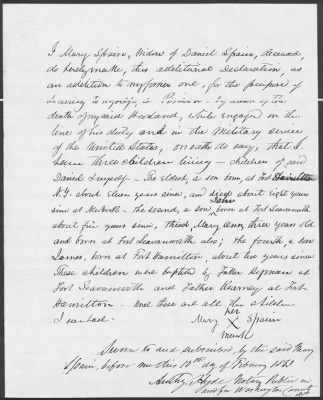 I Mary Spain, Widow of Daniel Spain, deceased,
do hereby make, this additional Declaration, as
an addition to my former one, for the purpose of
securing to myself, a Pension - by reason of the
death of my said Husband, while engaged in the
line of his duty and in the Military service
of the United States, on oath do say, that I
have three children living - children of said
Daniel & myself - The eldest, a son born, at Fort Hamilton
N.Y. about eleven years since, and died about eight years
since at - The second, a son, John born at Fort Leavenworth
about five years since, Third, Mary Ann, three years old
and born at Fort Leavenworth also; the fourth, a son
James, born at Fort Hamilton, about two years since
These children were baptised by Father
at
Fort Leavenworth and Father Kearney at Fort
Hamilton - And these are all the children
I ever had.
Mary her X mark Spain
Sworn to and subscribed, by the said Mary
Spain, before me this 10th day of February 1863
Anthy Hyde Notary Public in
and for Washington County
D.C.